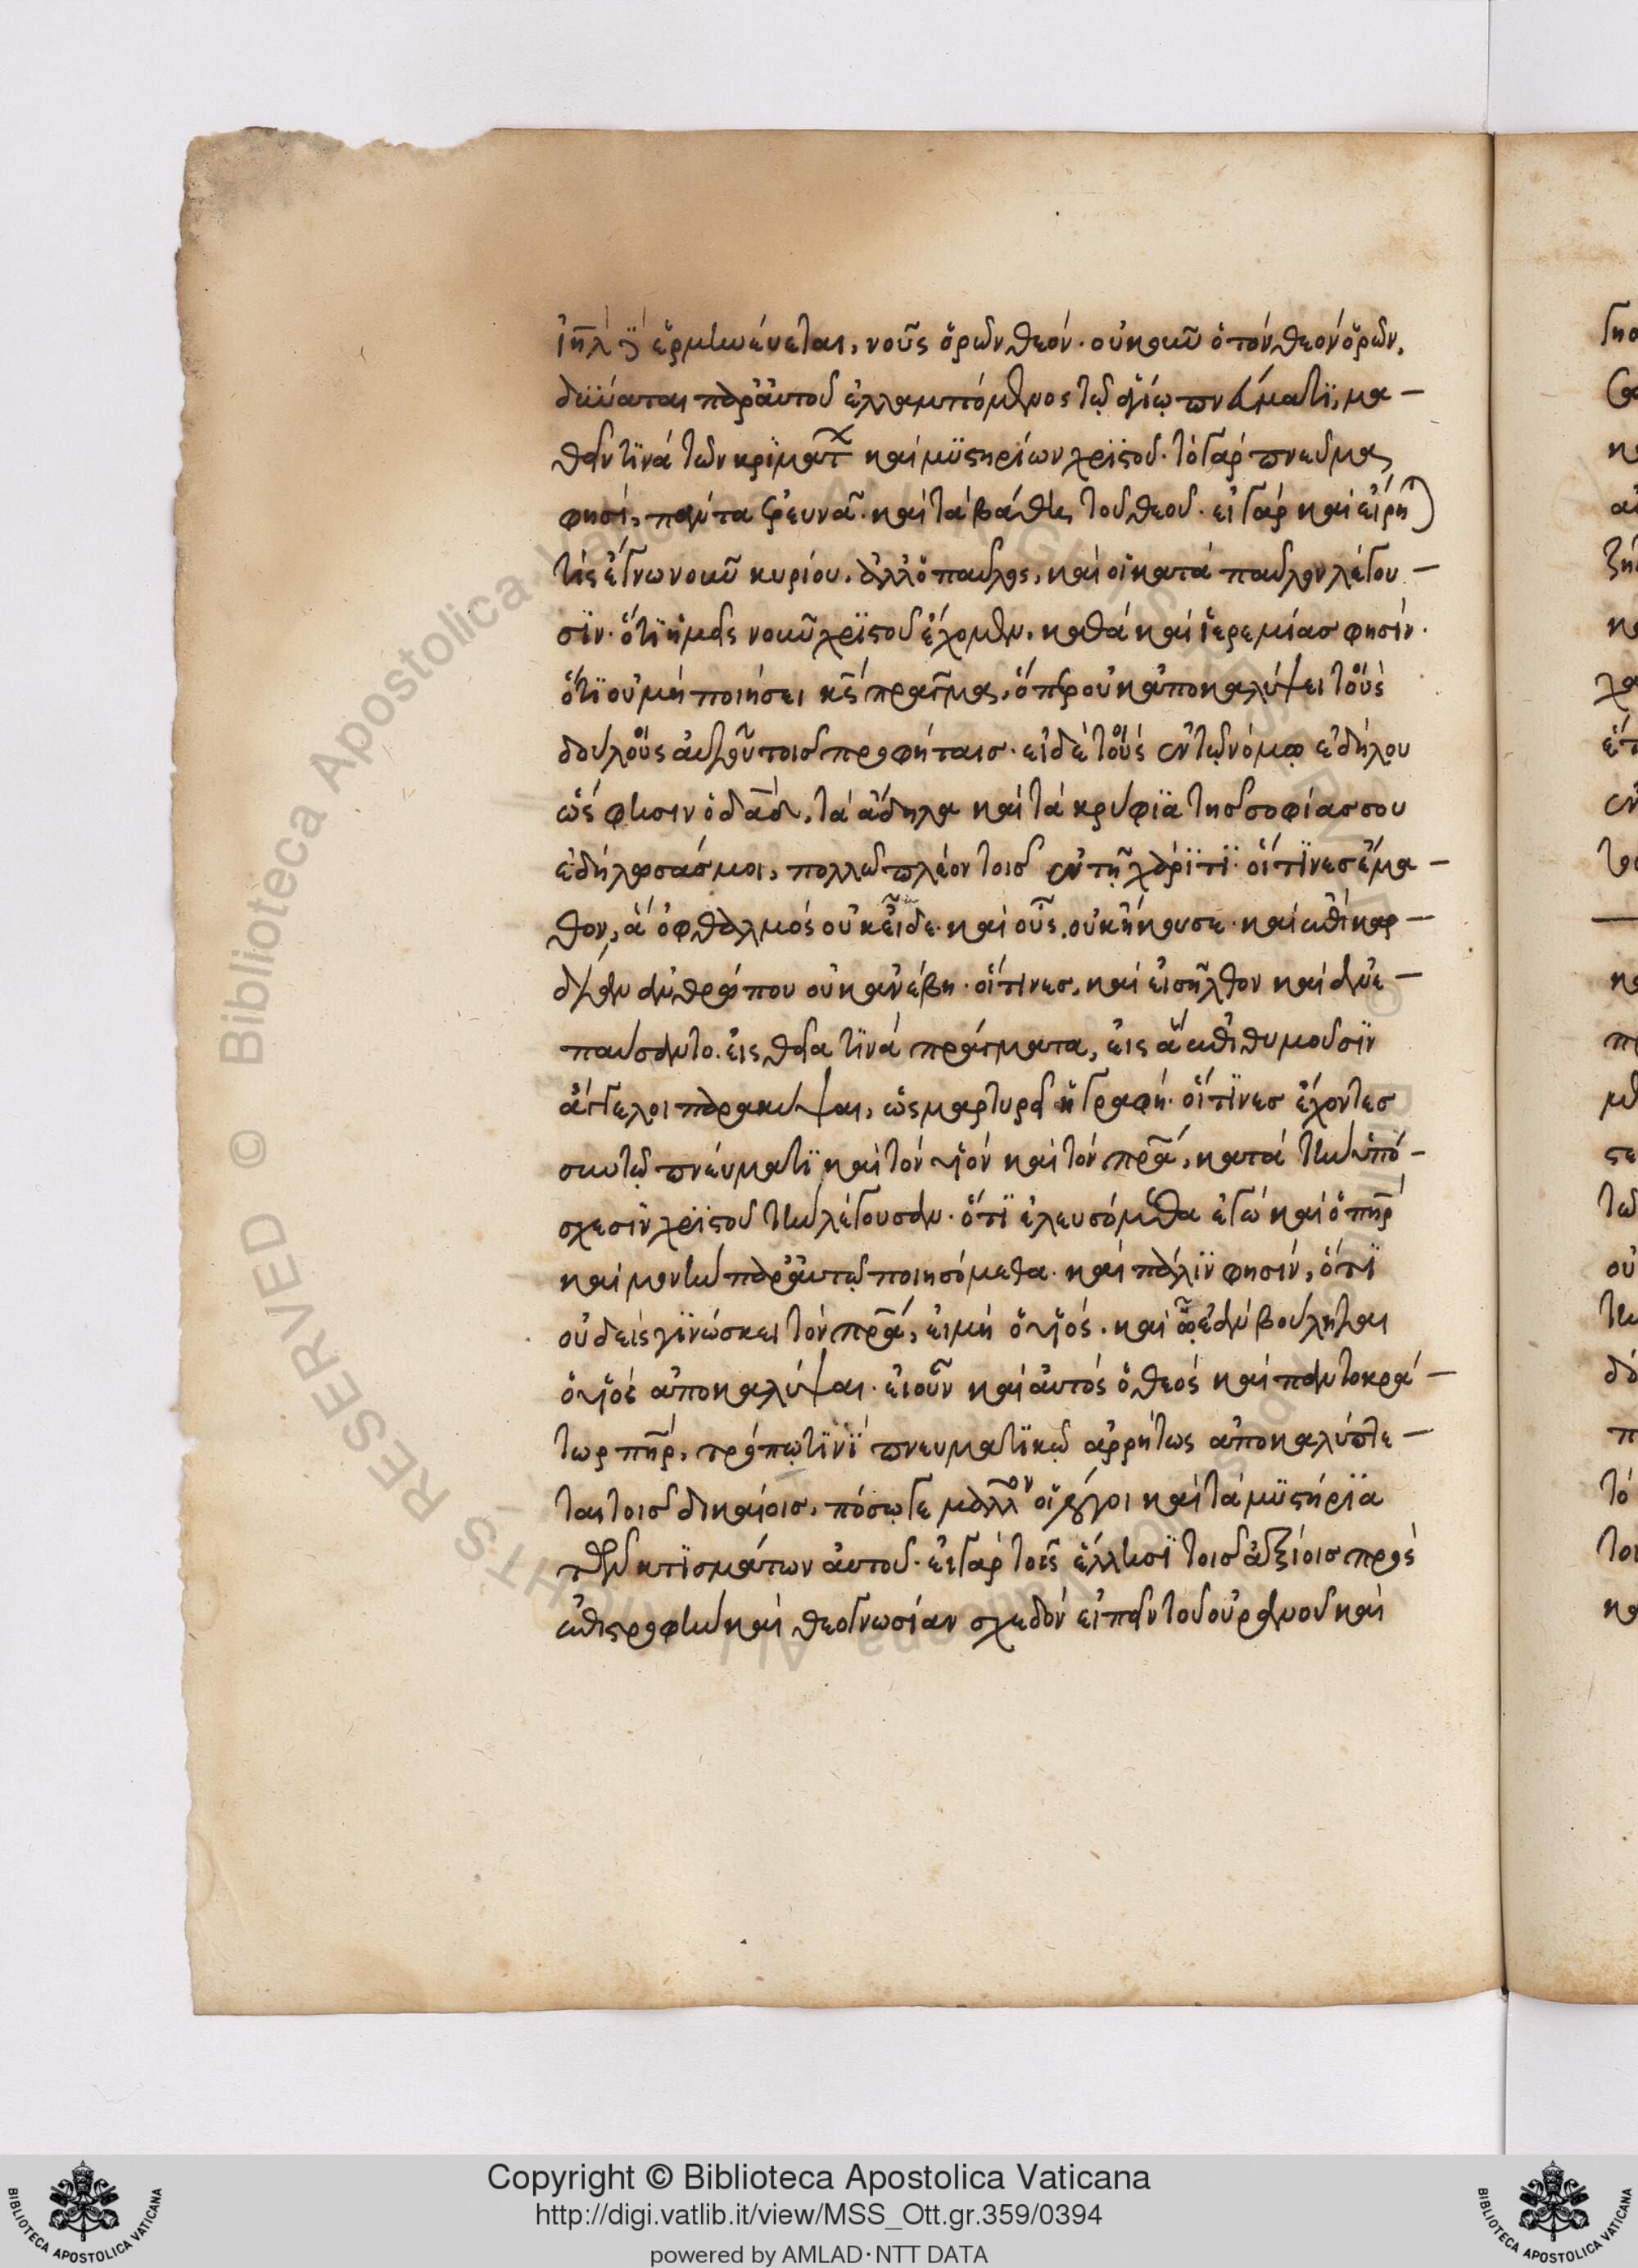 ἰη̅λ γὰρ ἑρμηνεύεται, νοῦς ὁρῶν θεόν· οὐκοῦν ὁ τὸν θεὸν ὁρῶν,
δύναται παρ' αὐτοῦ ἐλλαμπόμενος τῷ ἁγίω πνεύματϊ, μα-
θεῖν τϊνὰ τῶν κρϊμάτ καὶ μϋστηρίων χρϊστοῦ· τὸ γὰρ πνεῦμα
φησὶ, πάντα ἐρευνᾶ· καὶ τὰ βάθη τοῦ θεοῦ· εἰ γὰρ καὶ εἴρη
τίς ἔγνω νοῦν κυρίου, ἀλλ' ὁ παῦλος, καὶ οἱ κατὰ παῦλον λέγου-
σϊν· ὅτϊ ἡμεῖς νοῦν χρϊστοῦ ἔχομεν, καθὰ καὶ ἱερεμίας φησίν·
ὅτϊ οὐ μὴ ποιήσει κ̅ς πρᾶγμα, ὅπερ οὐκ ἀποκαλύψει τοὺς
δούλους αὐτοῦ τοῖς προφήταις· εἰ δὲ τοὺς ἐν τῷ νόμῳ ἐδήλου
ὥς φησιν ὁ δα̅δ, τὰ ἄδηλα καὶ τὰ κρύφϊα τῆς σοφίας σου
ἐδήλωσάς μοι, πολλῶ πλέον τοῖς ἐν τῇ χάρϊτϊ· οἵτϊνες ἔμα-
θον, ἃ ὀφθαλμὸς οὐκ εἶδε· καὶ οὖς, οὐκ ἤκουσε· καὶ ἐπὶ καρ-
δίαν ἀνθρώπου οὐκ ἀνέβη· οἵτινες, καὶ εἰσῆλθον καὶ ἀνε-
παύσαντο. εἰς θεῖα τϊνὰ πράγματα, εἰς ἃ ἐπιθυμοῦσϊν
ἄγγελοι παρακύψαι, ὡς μαρτυρεῖ ἡ γραφή· οἵτϊνες ἔχοντες
σὺν τῷ πνεύματϊ καὶ τὸν υἱὸν καὶ τὸν πρ̅α, κατὰ τὴν ὑπό-
σχεσϊν χρϊστοῦ τὴν λέγουσαν· ὅτϊ ἐλευσόμεθα ἐγὼ καὶ ὁ πη̅ρ
καὶ μονὴν παρ' αὐτῷ ποιησόμεθα· καὶ πάλϊν φησίν, ὅτϊ
οὐδεὶς γϊνώσκει τὸν πρ̅α, εἰ μὴ ὁ υἱός· καὶ ᾧ ἐὰν βούληται
ὁ υἱὸς ἀποκαλύψαι· εἰ οὖν καὶ αὐτὸς ὁ θεὸς καὶ παντοκρά-
τωρ πη̅ρ, τρόπῳ τϊνϊ πνευματϊκῷ ἀρρήτως ἀποκαλύπτε-
ται τοῖς δικαίοις, πόσῳ γε μᾶλλον οἱ λόγοι καὶ τὰ μϋστήρϊα
τῶν κτϊσμάτων αὐτοῦ· εἰ γὰρ τοῖς ἕλλησϊ τοῖς ἀξίοις πρὸς
ἐπιστροφὴν καὶ θεογνωσίαν σχεδὸν εἰπεῖν τοῦ οὐρανοῦ καὶ
Copyright © Biblioteca Apostolica Vaticana
http://digi.vatlib.it/view/MSS_Ott.gr.359/0394
powered by AMLAD·NTT DATA